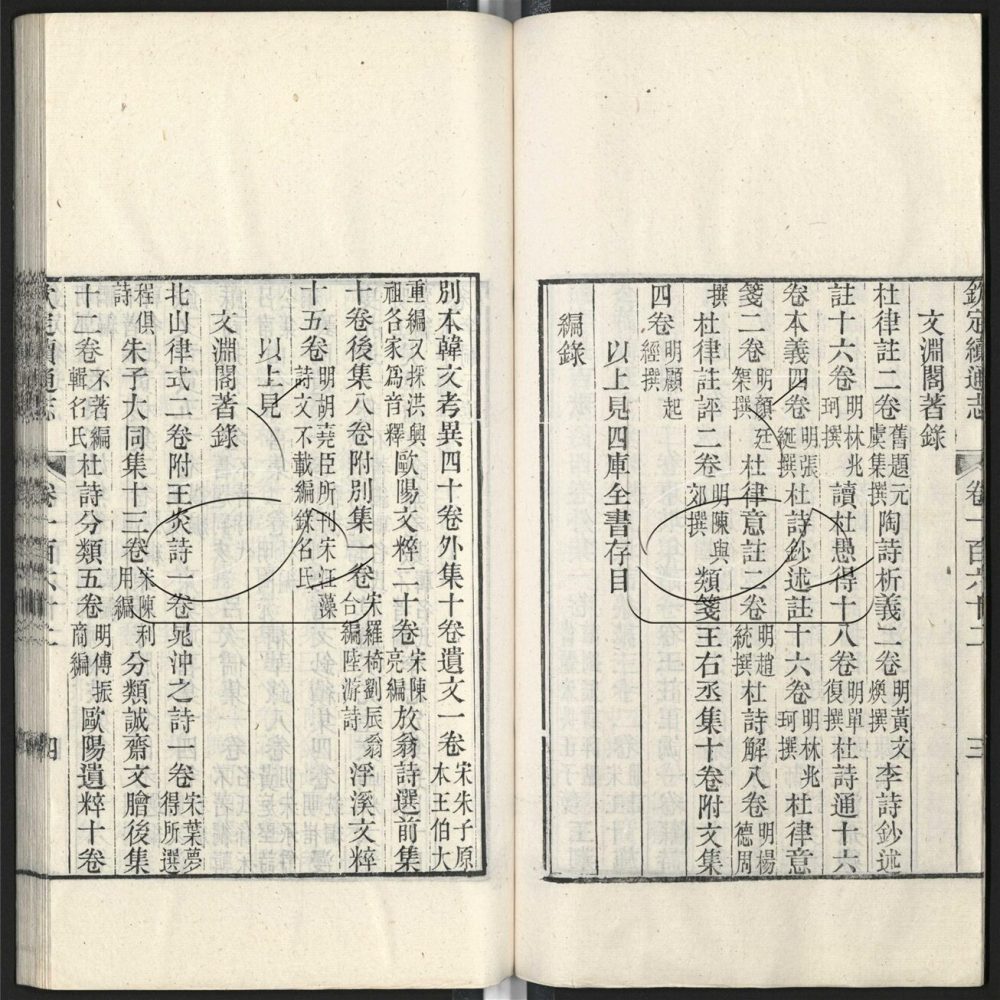 欽定續通志 卷一百六十二 三
文淵閣著錄
杜律註二卷舊題元虞集撰陶詩析義二卷明黃文煥撰李詩鈔述
註十六卷明林兆珂撰讀杜愚得十八卷明單復撰杜詩通十六
卷本義四卷明張綖撰杜詩鈔述註十六卷明林兆珂撰杜律意
箋二卷明顏廷榘撰杜律意註二卷明趙統撰杜詩解八卷明楊德周
撰杜律註評二卷明陳與郊撰類箋王右丞集十卷附文集
四卷明顧起經撰
以上見四庫全書存目
編錄
別本韓文考異四十卷外集十卷遺文一卷宋朱子原本王伯大
重編又採洪興祖各家為音釋歐陽文粹二十卷宋陳亮編放翁詩選前集
十卷後集八卷附別集一卷宋羅椅劉辰翁編陸游詩浮溪文粹
十五卷明胡堯臣所刊宋汪藻詩文不載編錄名氏
以上見
文淵閣著錄
北山律式二卷附王炎詩一卷晁沖之詩一卷宋葉夢得所選
程俱詩朱子大同集十三卷宋陳利用編分類誠齋文膾後集
十二卷不著編輯名氏杜詩分類五卷明傅振商編歐陽遺粹十卷
欽定續通志 卷一百六十二 四